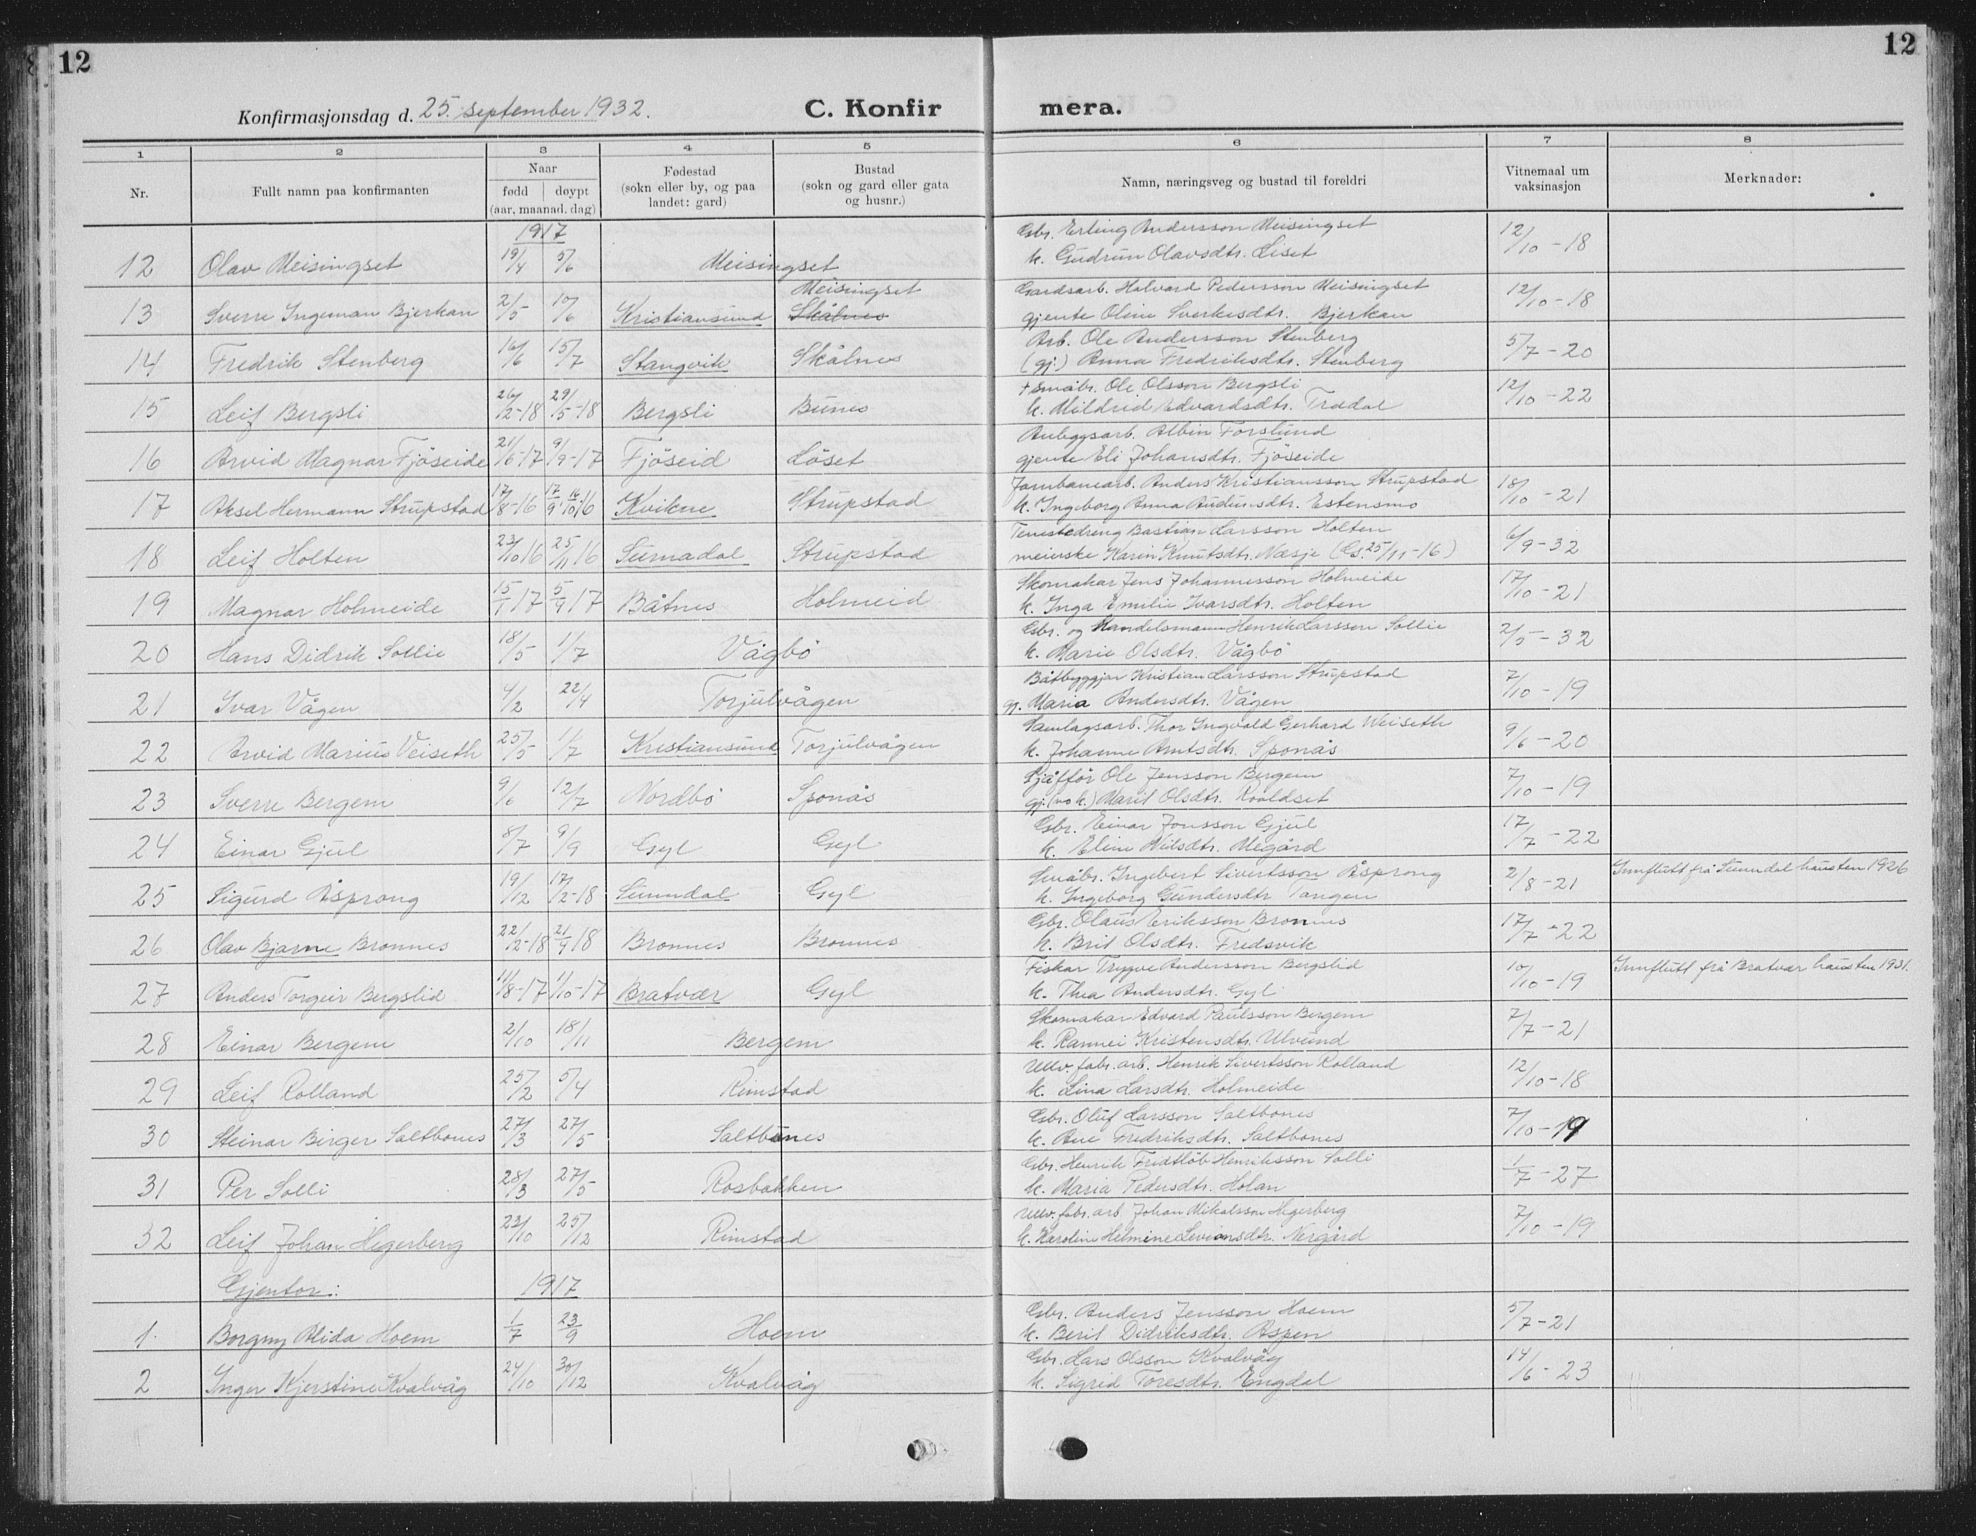 12
12
Konfirmasjonsdag d. 25. september 1932.
C. Konfir mera.
1 2 3 4 5 6 7 8
Nr. Fullt namn paa konfirmanten Naar fødd døypt (aar, maanad. dag) Fødestad (sokn eller by, og paa landet: gard) Bustad (sokn og gard eller gata og husnr.) Namn, næringsveg og bustad til foreldri Vitnemaal um vaksinasjon Merknader:
1917
12 Olav Meisingset 19/4 5/6 Meisingset Gbr. Erling Andersson Meisingset 12/10-18
k. Gudrun Olavsdtr. Liset
13 Sverre Ingeman Bjerkan 2/5 10/6 Kristiansund Meisingset Skålnes Gardsarb. Halvard Pedersson Meisingset 12/10-18
gjente Oline Sverkesdtr. Bjerkan
14 Fredrik Stenberg 16/6 15/7 Stangvik Skålnes Arb. Ole Andersson Stenberg 5/7-20
(gj.) Anna Fredriksdtr. Stenberg
15 Leif Bergsli 26/2-18 29/5-18 Bergsli Bunes + Småbr. Ole Olsson Bergsli 12/10-22
k. Mildrid Edvardsdtr. Trædal
16 Arvid Magnar Fjöseide 21/6-17 9/9-17 Fjöseid Löset Anleggsarb. Albin Forslund
gjente Eli Johansdtr. Fjöseide
17 Aksel Hermann Strupstad 17/8-16 17/9 16/10 16 Kvikne Strupstad Jarnbanearb. Anders Kristiansson Strupstad 18/10-21
k. Ingeborg Anna Audunsdtr. Estensmo
18 Leif Holten 23/10 16 25/11 16 Surnadal Strupstad Tenestedreng Bastian Larsson Holten 6/9-32
meierske Karin Knutsdtr. Næsje (Gs. 25/11-16)
19 Magnar Holmeide 15/1 17 5/9 17 Båtnes Holmeid Skomakar Jens Johannesson Holmeide 17/10-21
k. Inga Emilie Ivarsdtr. Holten
20 Hans Didrik Sollie 18/5 1/7 Vågbö Gbr. og Handelsmann Henrik Larsson Sollie 2/5-32
k. Marie Olsdtr. Vågbö
21 Ivar Vågen 4/2 22/4 Torjulvågen Båtbyggjar Kristian Larsson Strupstad 7/10-19
gj. Maria Andersdtr. Vågen
22 Arvid Marius Veiseth 25/5 1/7 Kristiansund Torjulvågen Samlagsarb. Thor Ingvald Gerhard Weiseth 9/6-20
k. Johanne Arntsdtr. Sponås
23 Sverre Bergem 9/6 12/7 Nordbö Sponås Sjåffør Ole Jensson Bergem 7/10-19
gj. (no k.) Marit Olsdtr. Kvaldset
24 Einar Gjul 8/7 9/9 Gyl Gyl Gbr. Einar Jonsson Gjul 17/7-22
k. Eline Nilsdtr. Megård
25 Sigurd Åsprong 19/12 17/2-18 Sunndal Gyl Småbr. Ingebert Sivertsson Åsprong 2/8-21 Innflutt frå Sunndal hausten 1926
k. Ingeborg Gundersdtr Tangen
26 Olav Bjarne Bronnes 22/2-18 21/4 18 Bronnes Bronnes Gbr. Olaus Eriksson Bronnes 17/7-22
k. Brit Olsdtr. Fredsvik
27 Anders Torgeir Bergslid 11/8-17 11/10-17 Bratvær Gyl Fiskar Trygve Andersson Bergslid 10/10-19 Innflutt frå Bratvær hausten 1931.
k. Thea Andersdtr. Gyl
28 Einar Bergem 2/10 18/11 Bergem Skomakar Edvard Paulsson Bergem 7/7-21
k. Rannei Kristensdtr. Ulvund
29 Leif Rolland 25/2 5/4 Rimstad Ullv. fabr. arb. Henrik Sivertsson Rolland 12/10-18
k. Lina Larsdtr. Holmeide
30 Steinar Birger Saltbones 27/3 27/5 Saltbunes Gbr. Oluf Larsson Saltbones 7/10-19
k. Ane Fredriksdtr. Saltbones
31 Per Solli 28/3 27/5 Rosbakken Gbr. Henrik Fridtlöb Henriksson Solli 1/7-27
k. Maria Pedersdtr. Holan
32 Leif Johan Hegerberg 23/10 25/12 Rimstad Ullv. fabr. arb Johan Mikalsson Hegerberg 7/10-19
k. Karoline Helmine Levionsdtr. Nergård
Gjentor: 1917
1. Borgny Alida Hoem 1/7 23/9 Hoem Gbr. Anders Jensson Hoem 5/7-21
k. Berit Didriksdtr. Aspen
2 Inger Kjerstine Kvalvåg 24/10 30/12 Kvalvåg Gbr. Lars Olsson Kvalvåg 14/6-23
k. Sigrid Toresdtr. Engdal